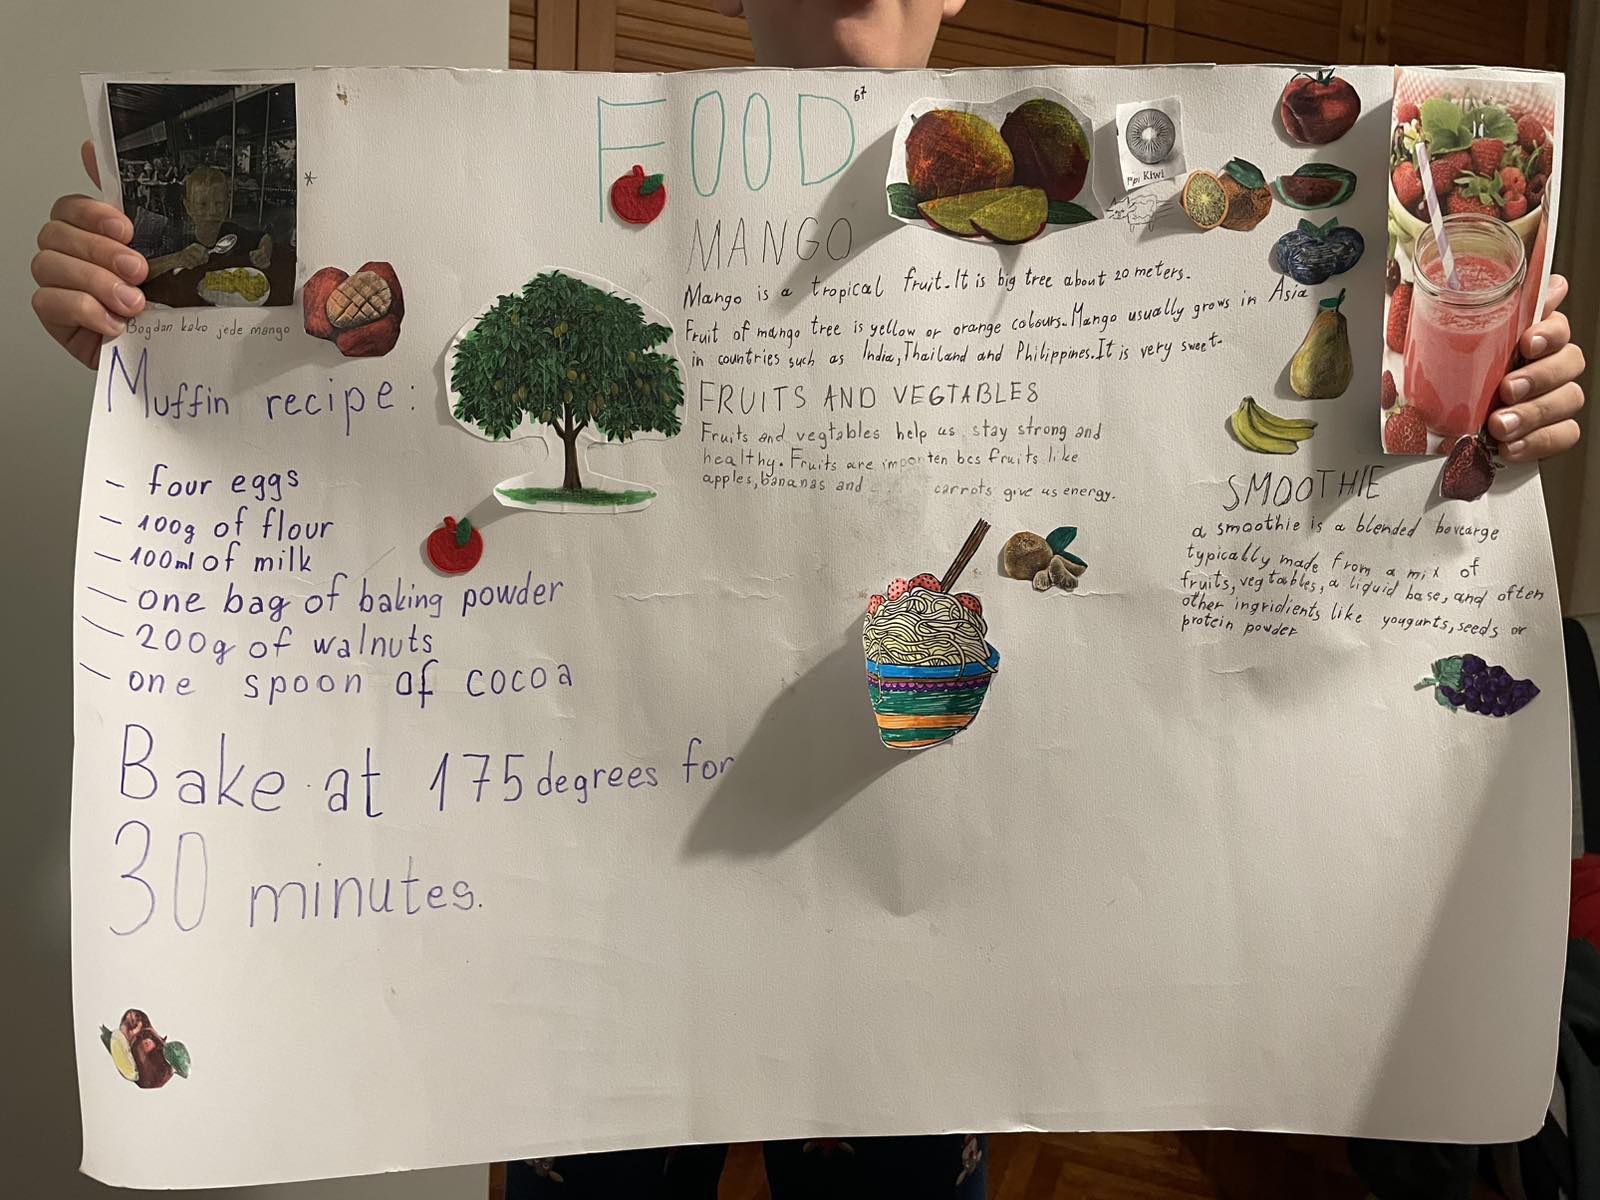 FOOD 67
MANGO
Mango is a tropical fruit. It is big tree about 20 meters.
Fruit of mango tree is yellow or orange colours. Mango usually grows in Asia
in countries such as India, Thailand and Philippines. It is very sweet.
FRUITS AND VEGTABLES
Fruits and vegtables help us stay strong and
healthy. Fruits are importen bcs fruits like
apples, bananas and carrots give us energy.
Kiwi
*
Bogdan kako jede mango
Muffin recipe:
- four eggs
- 100g of flour
- 100ml of milk
- one bag of baking powder
- 200g of walnuts
- one spoon of cocoa
Bake at 175 degrees for
30 minutes.
SMOOTHIE
a smoothie is a blended bevearge
typically made from a mix of
fruits, vegtables, a liquid base, and often
other ingridients like yougurts, seeds or
protein powder